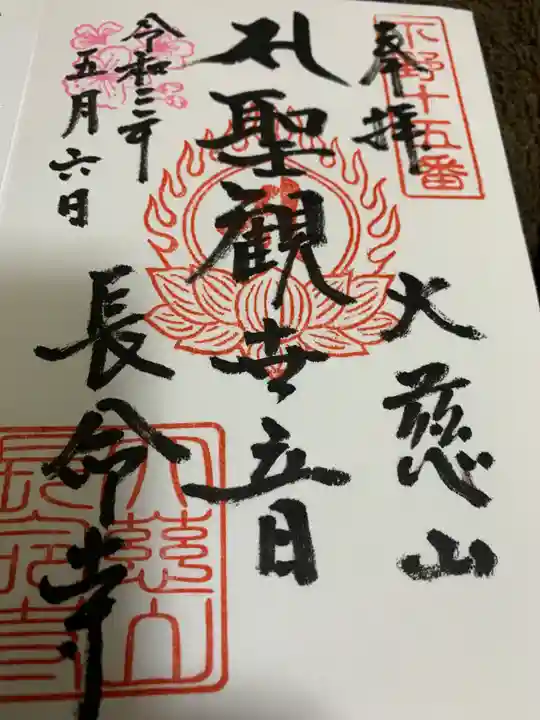 下野十五番
奉拝
大慈山
札聖観世音
長命寺
令和三年
五月六日
大慈山
長命寺